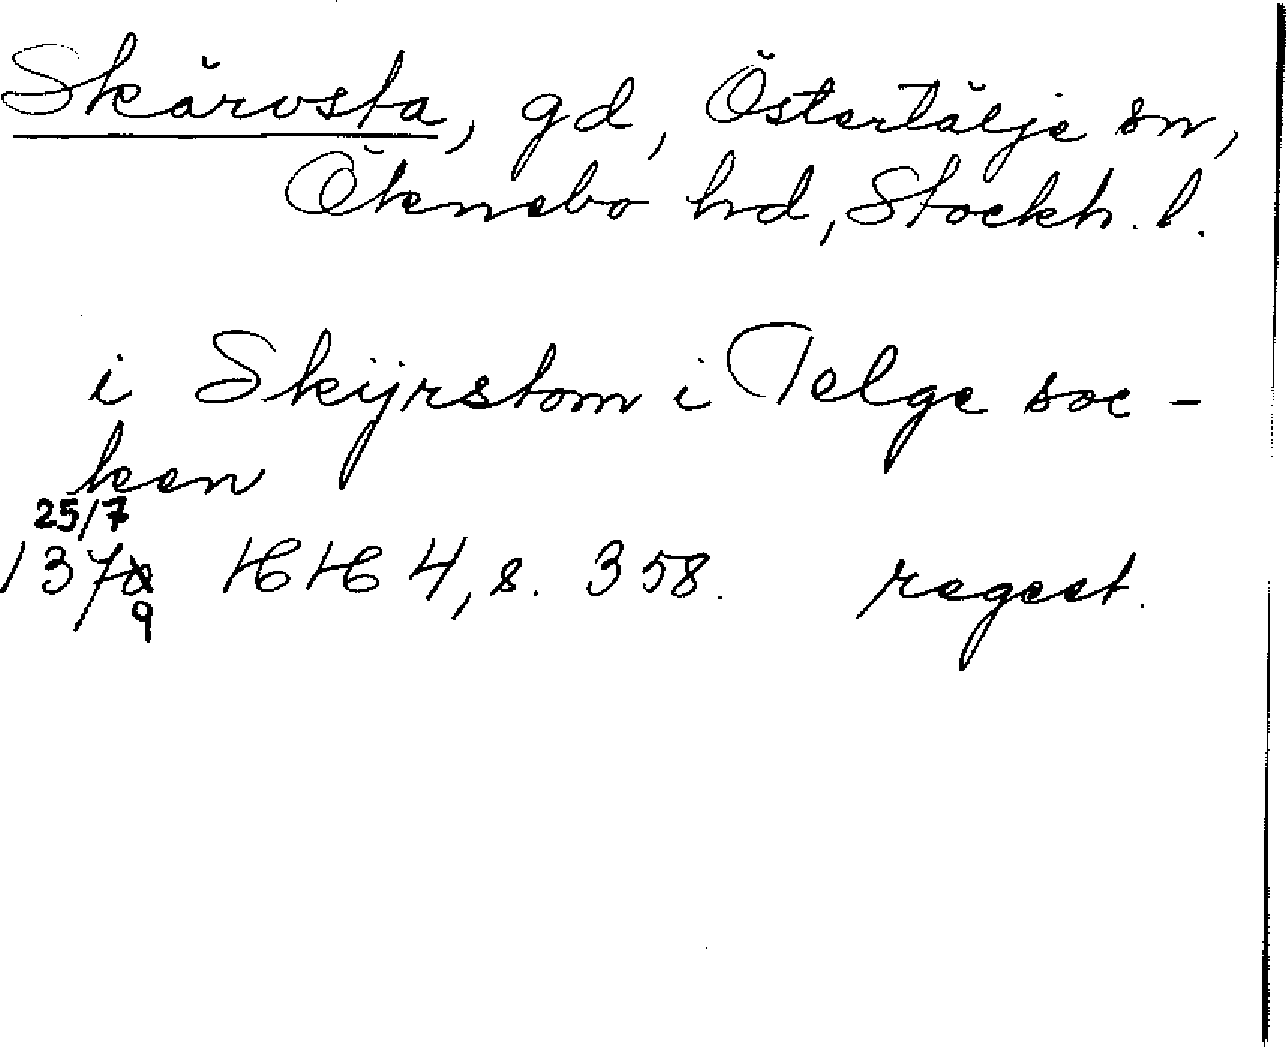 Skärvsta, gd, Östertälje sn,
Öknebo hd, Stockh. l.
i Skijrstom i Telge soc-
ken
25/7
1379 HH 4, s. 358. regest.